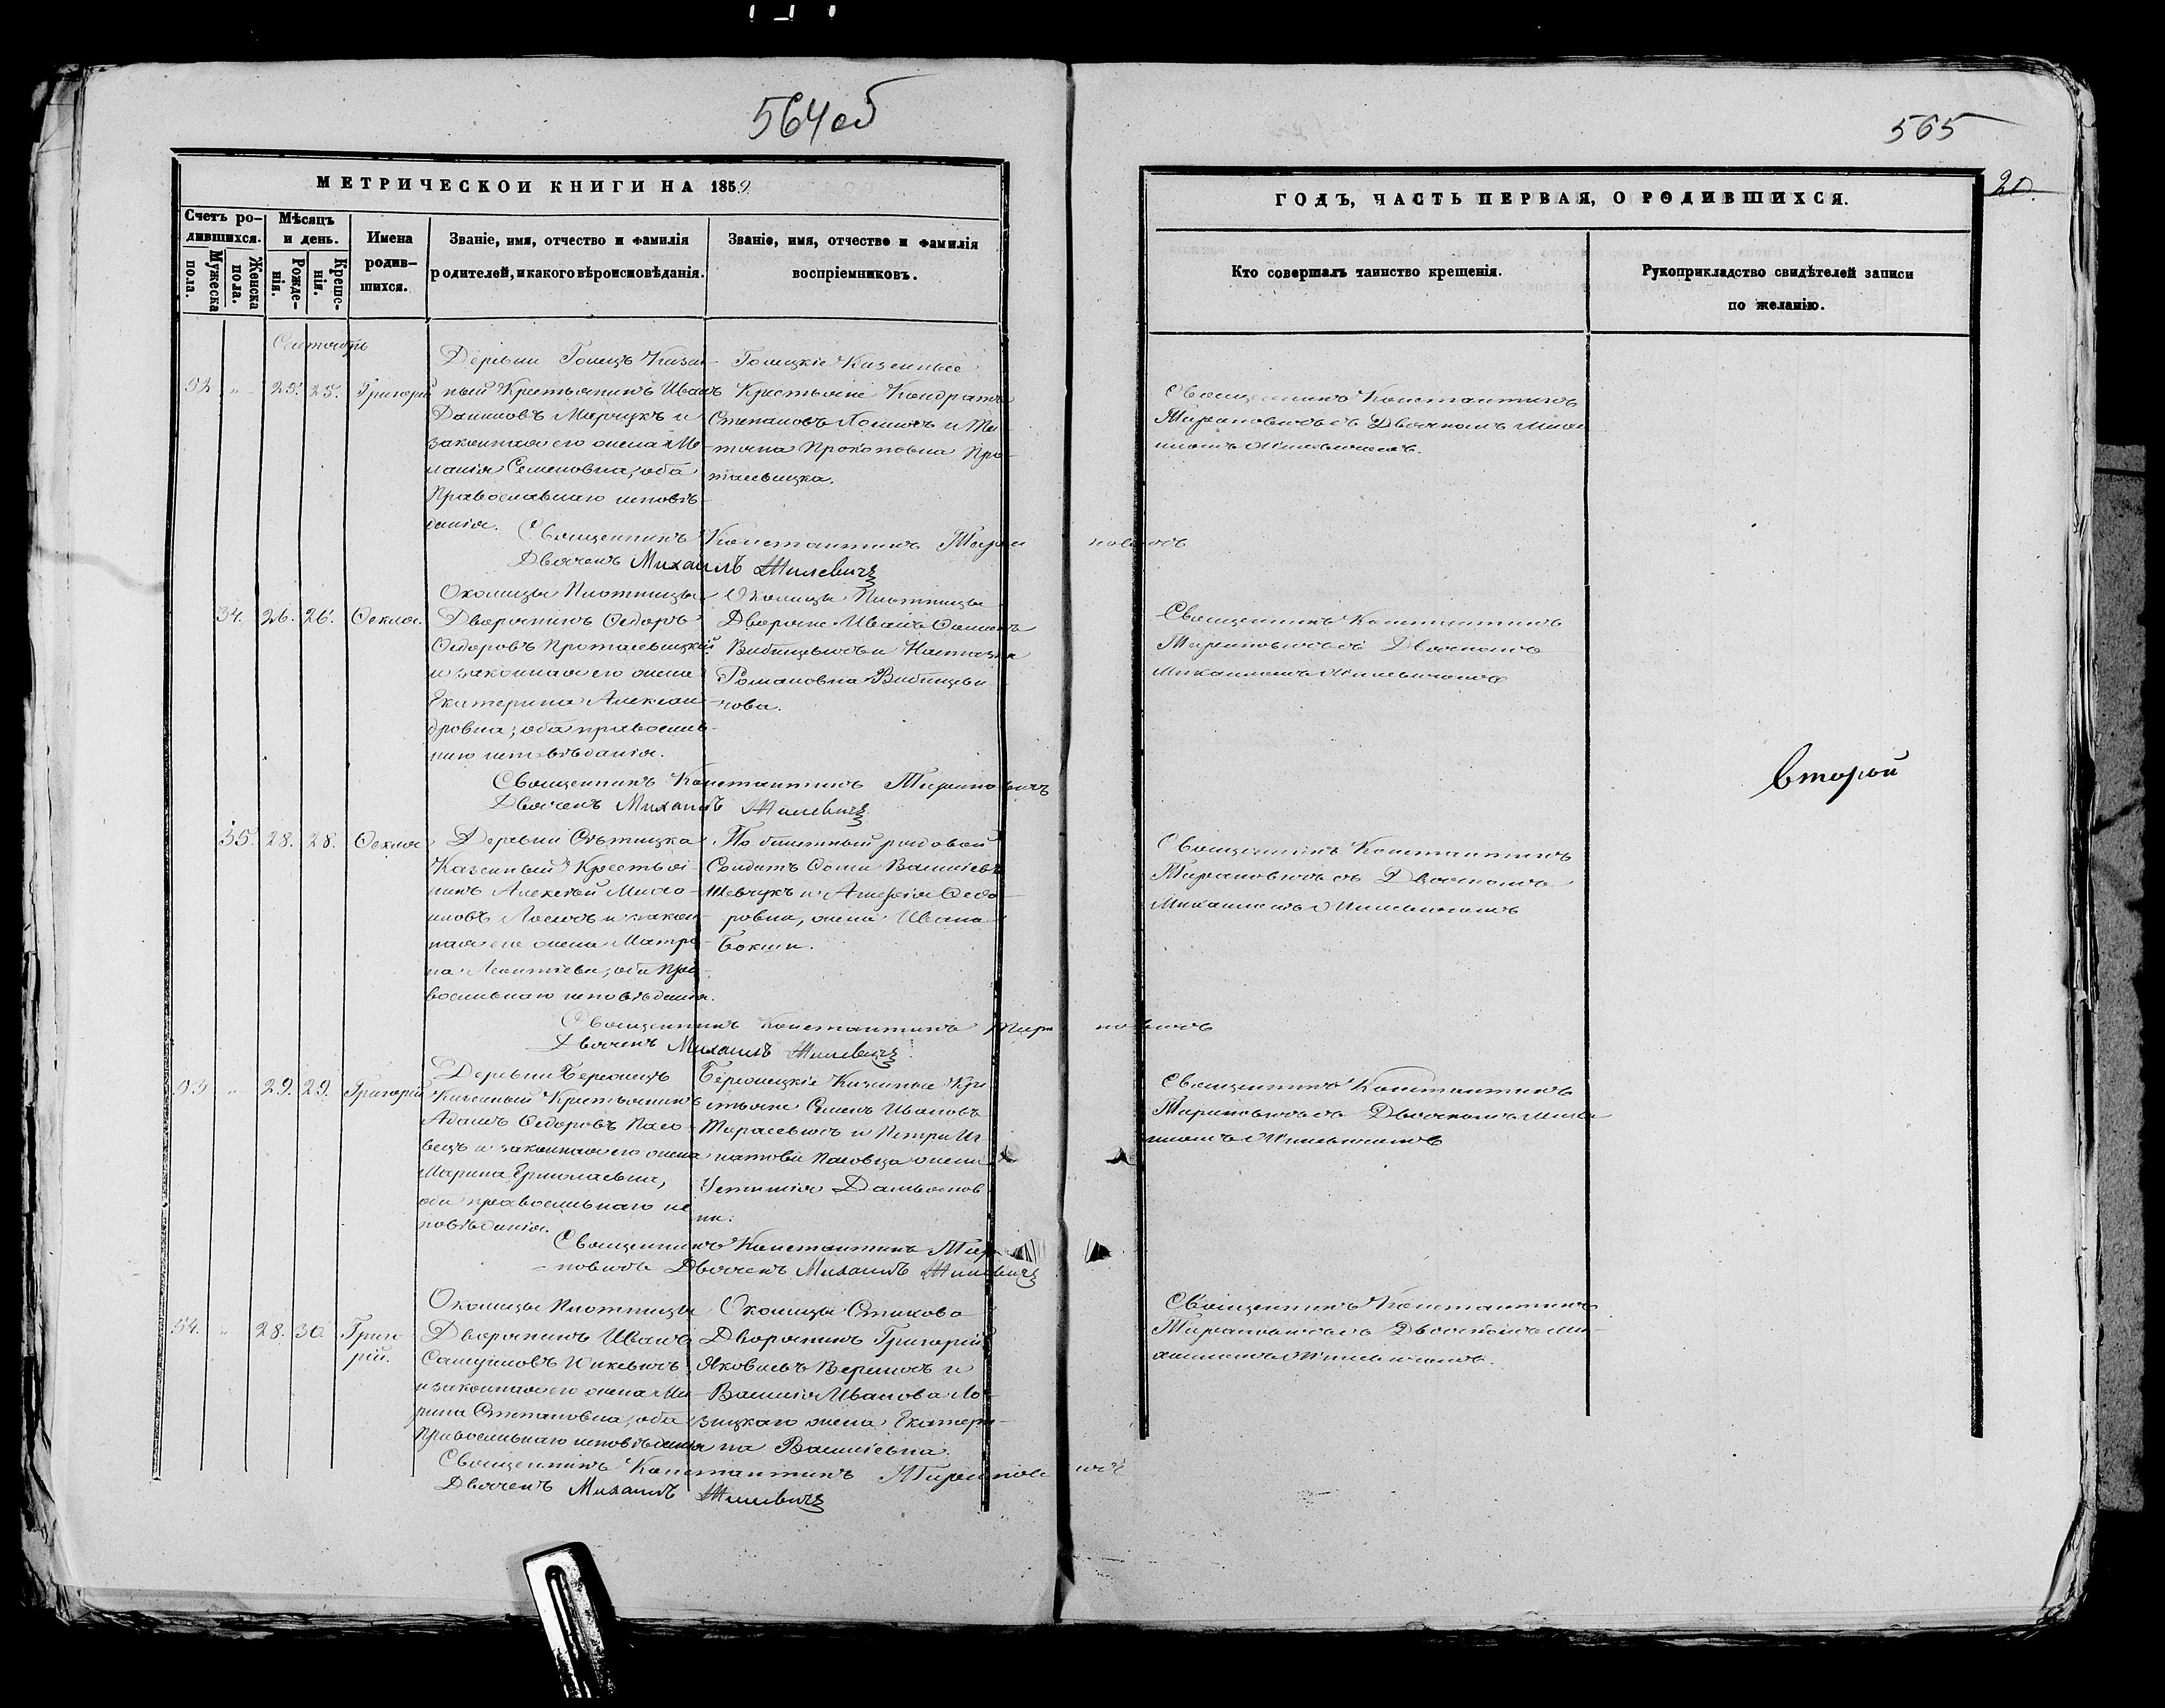 564об
МЕТРИЧЕСКОЙ КНИГИ НА 1859
Счетъ ро-
дившихся.
Мужеска
пола.
Женска
пола.
Мѣсяцъ
и день.
Рожде-
нія.
Креще-
нія.
Имена
родив-
шихся.
Званіе, имя, отчество и фамилія
родителей, и какого вѣроисповѣданія.
Званіе, имя, отчество и фамилія
воспріемниковъ.
Сентябрь
52 " 25. 25. Григорій
Деревни Гонецъ Казен-
ный Крестьянинъ Иванъ
Даниловъ Марчукъ и
законная его жена Ме-
ланія Семеновна, оба
Православнаго исповѣ-
данія.
Гонецкіе Казенные
Крестьяне Кондратъ
Степановъ и Та-
тіана Прокоповна Про-
тасевицка.
Священникъ Константинъ Тарановичъ
Дьячекъ Михаилъ Жилевичъ
34. 26. 26. Ѳекла.
Околицы Плотницы
Дворянинъ Ѳедоръ
Ѳедоровъ Протасевицкій
и законная его жена
Екатерина Алексан-
дровна; оба православ-
наго исповѣданія.
Околицы Плотницы
Дворяне Иванъ Ѳоминъ
Вабищевичъ и Настазія
Романовна Вабищеви-
чова.
Священникъ Константинъ Тарановичъ
Дьячекъ Михаилъ Жилевичъ
35. 28. 28. Ѳекла
Деревни Ѳѣтицка
Казенный Крестья-
нинъ Алексѣй
Лосичъ и закон-
ная его жена Матре-
на Леонтіева; оба Пра-
вославнаго исповѣданія.
По билетный рядовой
Солдатъ Ѳома Василіевъ
Шевчукъ и Ѳедо-
ровна, жена Ивана
Бокши.
Священникъ Константинъ Тарановичъ
Дьячекъ Михаилъ Жилевичъ
53 " 29. 29. Григорій
Деревни Бережецъ
Казенный Крестьянинъ
Адамъ Ѳедоровъ Пасо-
вецъ и законная его жена
Марина Ермолаевна,
оба православнаго ис-
повѣданія.
Бережецкіе Казенные Кре-
стьяне Семенъ Ивановъ
Тарасевичъ и Петра Иг-
натова Пасовца жена
Устинія Дамьянов-
на.
Священникъ Константинъ Тара-
новичъ Дьячекъ Михаилъ Жилевичъ
54. " 28. 30. Григо-
рій.
Околицы Плотницы
Дворянинъ Иванъ
Самуиловъ
и законная его жена Ма-
рина Степановна, оба
Православнаго исповѣданія
Околицы Стахово
Дворянинъ Григорій
Яковлевъ Веремичъ и
Василія Иванова Ло-
зицкаго жена Екатери-
на Василіевна.
Священникъ Константинъ Тарановичъ
Дьячекъ Михаилъ Жилевичъ
565
20.
ГОДЪ, ЧАСТЬ ПЕРВАЯ, О РОДИВШИХСЯ.
Кто совершалъ таинство крещенія.
Рукоприкладство свидѣтелей записи
по желанію.
Священникъ Константинъ
Тарановичъ съ Дьячкомъ Миха-
иломъ Жилевичемъ.
Священникъ Константинъ
Тарановичъ съ Дьячкомъ
Михаиломъ Жилевичемъ
второй
Священникъ Константинъ
Тарановичъ съ Дьячкомъ
Михаиломъ Жилевичемъ
Священникъ Константинъ
Тарановичъ съ Дьячкомъ Миха-
иломъ Жилевичемъ
Священникъ Константинъ
Тарановичъ съ Дьячкомъ Ми-
хаиломъ Жилевичемъ.